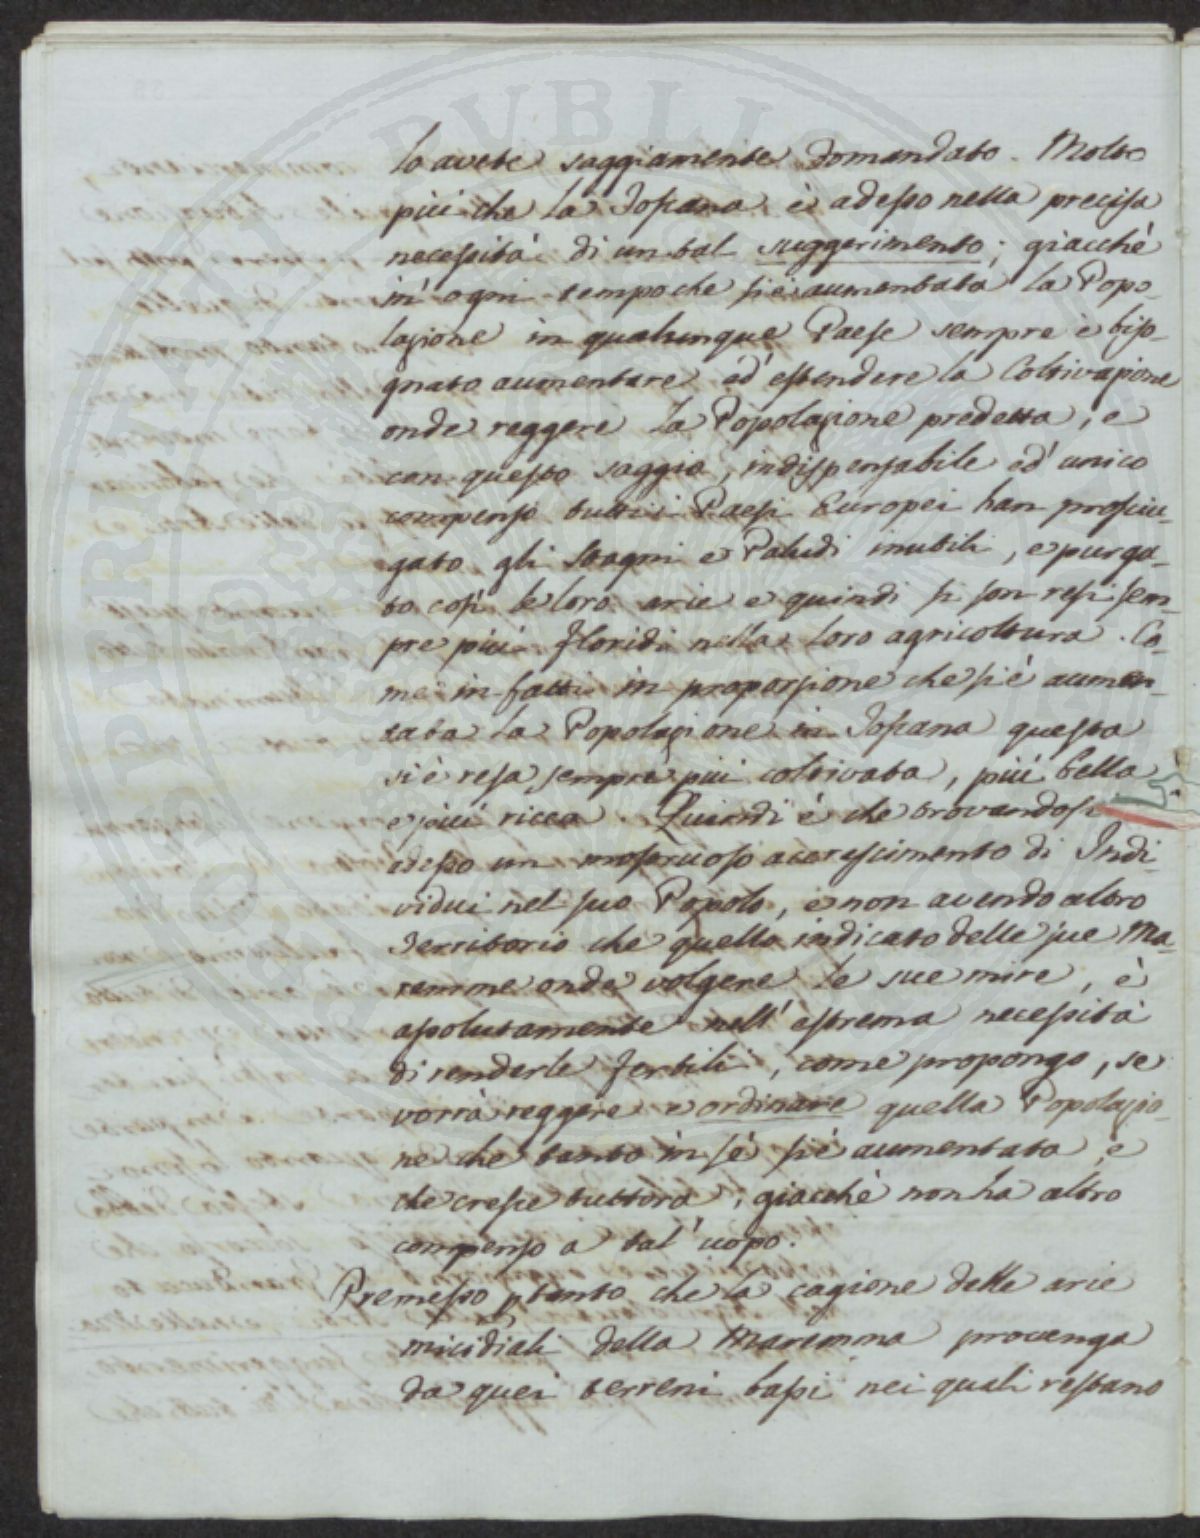 lo avete saggiamente domandato. Molto
più che la Toscana è adesso nella precisa
necessità di un tal suggerimento; giacchè
in ogni tempo che si è aumentata la Popo-
lazione in qualunque Paese sempre è biso-
gnato aumentare ed' estendere la Coltivazione
onde reggere la Popolazione predetta, e
con questo saggio, indispensabile ed' unico
compenso tutti i Paesi Europei han prosciu-
gato gli Stagni e Paludi inutili, e purga-
to così le loro arie e quindi si son resi sem-
pre più floridi nella loro agricoltura. Co-
me in fatti in proporzione che si è aumen-
tata la Popolazione in Toscana questa
si è resa sempre più coltivata, più bella
e più ricca. Quindi è che trovandosi
adesso un mostruoso accrescimento di Indi-
vidui nel suo Popolo, e non avendo altro
Territorio che quello indicato delle sue Ma-
remme onde volgere le sue mire, è
assolutamente nell' estrema necessità
di renderle fertili, come propongo, se
vorrà reggere e ordinare quella Popolazio-
ne che tanto in sé si è aumentata, e
che cresce tuttora, giacchè non ha altro
compenso a tal' uopo.
Premesso ptanto che la cagione delle arie
micidiali della Maremma provenga
da quei terreni bassi nei quali restano